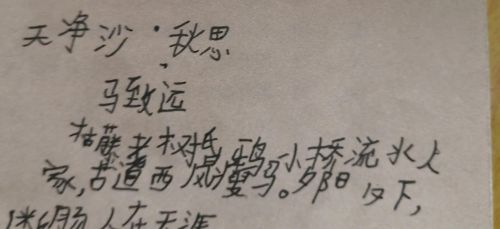 天净沙·秋思
马致远
枯藤老树昏鸦小桥流水人
家,古道西风瘦马。夕阳夕下,
断肠人在天涯